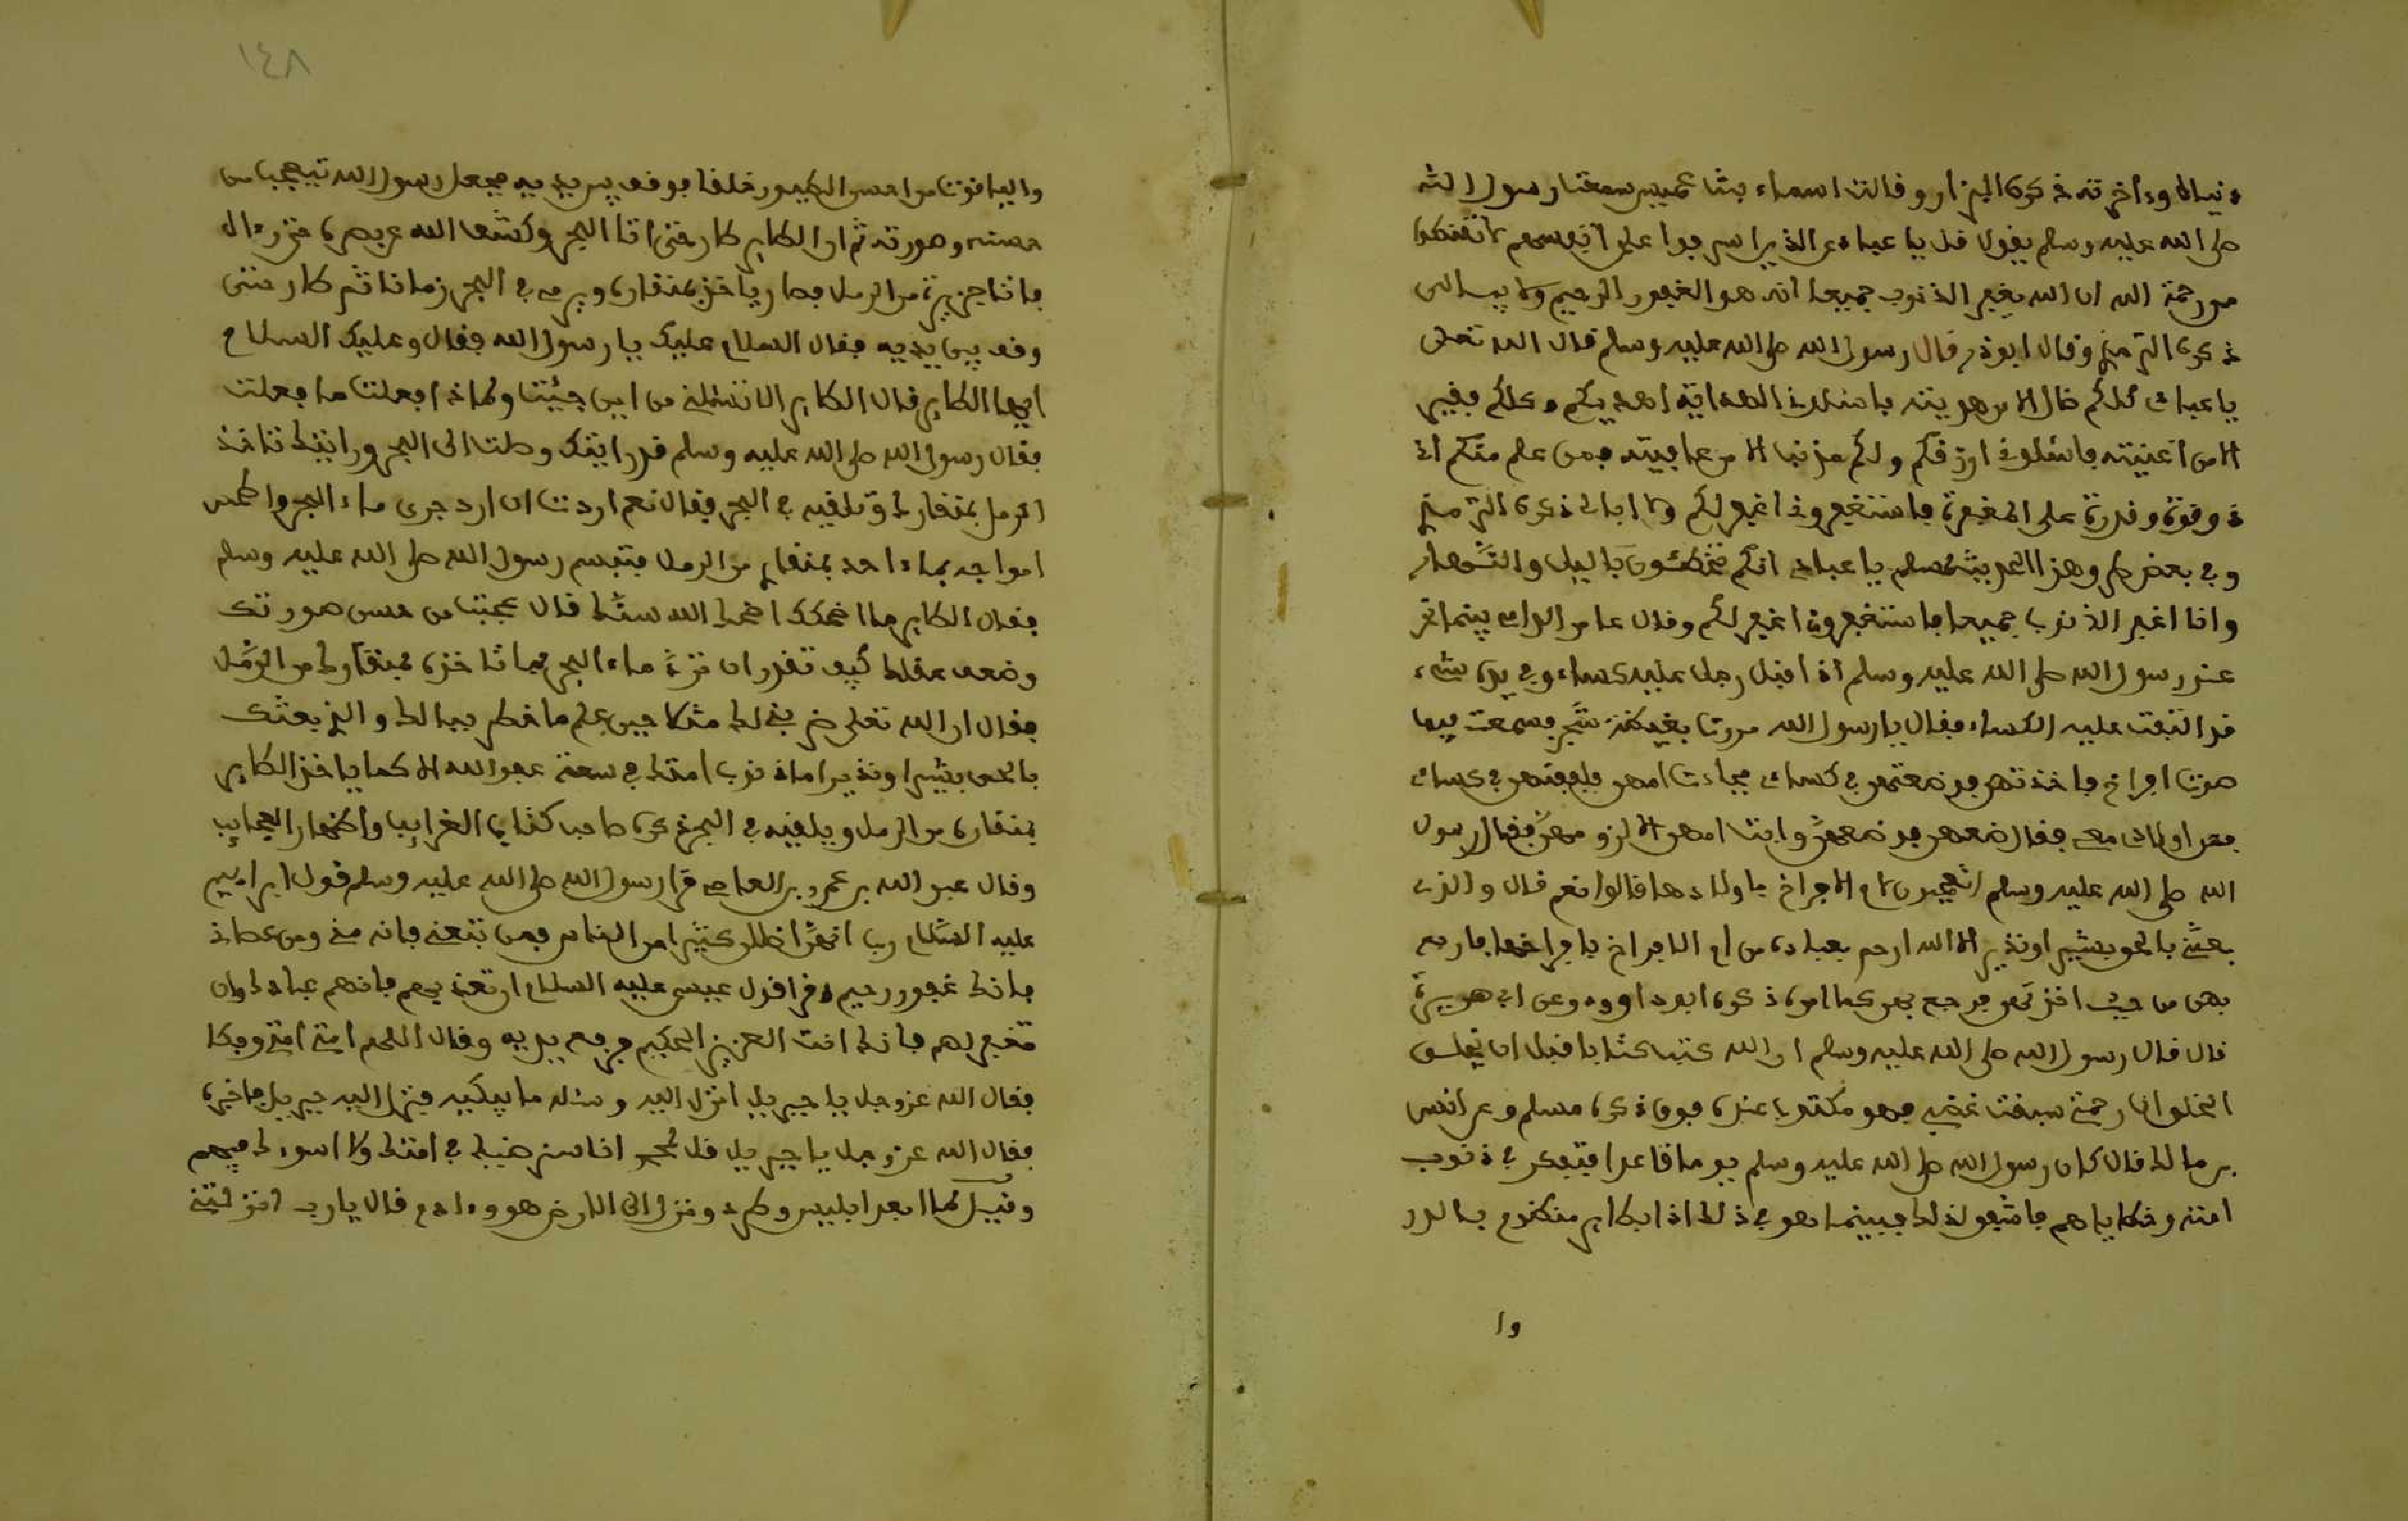 دنياك وءاخرتك ذكره البزار وقالت اسماء بنت عميس سمعت رسول الله
صلى الله عليه وسلم يقول قل يا عبادي الذين اسرفوا على انفسهم لا تقنطوا
من رحمة الله ان الله يغفر الذنوب جميعا انه هو الغفور الرحيم ولا يبالي
ذكره الترمذي وقال ابو ذر قال رسول الله صلى الله عليه وسلم قال الله تعلى
يا عبادي كلكم ضال الا من هديته فاسئلوني الهداية اهديكم وكلكم فقير
الا من اغنيته فاسئلوني ارزقكم وكلكم مذنب الا من عافيته فمن علم منكم اني
ذو قوة وقدرة على المغفرة فاستغفروني اغفر لكم ولا ابالي ذكره الترمذي
وفي بعض طرو هذا الحديث لمسلم يا عبادي انكم تخطئون باليل والنهار
وانا اغفر الذنوب جميعا فاستغفروني اغفر لكم وقال عامر الرام بينما نحن
عند رسول الله صلى الله عليه وسلم اذ اقبل رجل عليه كساء وفي يده شيء
قد التفت عليه الكساء فقال يا رسول الله مررت بغيضة شجر فسمعت فيها
صوت افراخ فاخذتهن فوضعتهن في كسائي فجاءت امهن فلففتهن في كسائي
فهن اولائي معي فقال ضعهن فوضعهن وابت امهن الا لزومهن فقال رسول
الله صلى الله عليه وسلم اتعجبون لام الافراخ باولادها قالوا نعم قال والذي
بعثني بالحق بشيرا ونذيرا لالله ارحم بعباده من ام الافراخ بافراخها فارجع
بهن من حيث اخذتهن فرجع بهن كما امره ذكره ابو داوود وعن ابي هريرة
قال قال رسول الله صلى الله عليه وسلم ان الله كتب كتابا قبل ان يخلق
الخلق ان رحمتي سبقت غضبي فهو مكتوب عنده فوق ذكره مسلم وعن انس
بن مالك قال كان رسول الله صلى الله عليه وسلم يوما قاعدا يتفكر في ذنوب
امته وخطاياهم فاشفق لذلك فبينما هو في ذلك اذا بطاير منظوم بالدر
وا
١٤٨
واليافوت من احسن الطيور خلقا فوقف بين يديه فجعل رسول الله يتعجب من
حسنه وصورته ثم ان الطاير طار حتى اتا البحر وكشف الله عن بصره حتى رءاه
فاتا جزيرة من الرمل فصار ياخذ بمنقاره ويرميه في البحر زمانا ثم طار حتى
وقف بين يديه فقال السلام عليك يا رسول الله فقال وعليك السلام
ايها الطاير قال الطاير الا تسئلني من اين جيئت ولماذا فعلت ما فعلت
فقال رسول الله صلى الله عليه وسلم قد رايتك وصلت الى البحر ورايتك تاخذ
الرمل بمنقارك وتلقيه في البحر فقال نعم اردت ان ارد جرى ماء البحر واطمس
امواجه بماء اخذ بمنقاري من الرمل فتبسم رسول الله صلى الله عليه وسلم
فقال الطاير ما اضحكك اضحك الله سنك قال عجبت من حسن صورتك
وضعف عقلك كيف تقدر ان ترد ماء البحر بما تاخذه بمنقارك من الرمل
فقال ان الله تعلى ضربني لك مثلا حين علم ما خطر ببالك والذي بعثك
بالحق بشيرا ونذيرا ما ذنوب امتك في سعة عفو الله الا كما ياخذ الطاير
بمنقاره من الرمل ويلقيه في البحر ذكره صاحب كتاب الغرايب واظهار العجايب
وقال عبد الله بن عمرو بن العاص قرا رسول الله صلى الله عليه وسلم قول ابراهيم
عليه السلام رب انهن اضللن كثيرا من الناس فمن تبعني فانه مني ومن عصاني
فانك غفور رحيم وقرا قول عيسى عليه السلام ان تعذبهم فانهم عبادك وان
تغفر لهم فانك انت العزيز الحكيم فرفع يديه وقال اللهم امتي امتي وبكا
فقال الله عز وجل يا جبريل انزل اليه وسئله ما يبكيه فنزل اليه جبريل فاخبره
فقال الله عز وجل يا جبريل قل لمحمد انا سنرضيك في امتك ولا اسوءك فيهم
وقيل لما ابعد ابليس وطرد ونزل الى الارض هو وءادم قال يا رب انزلتني